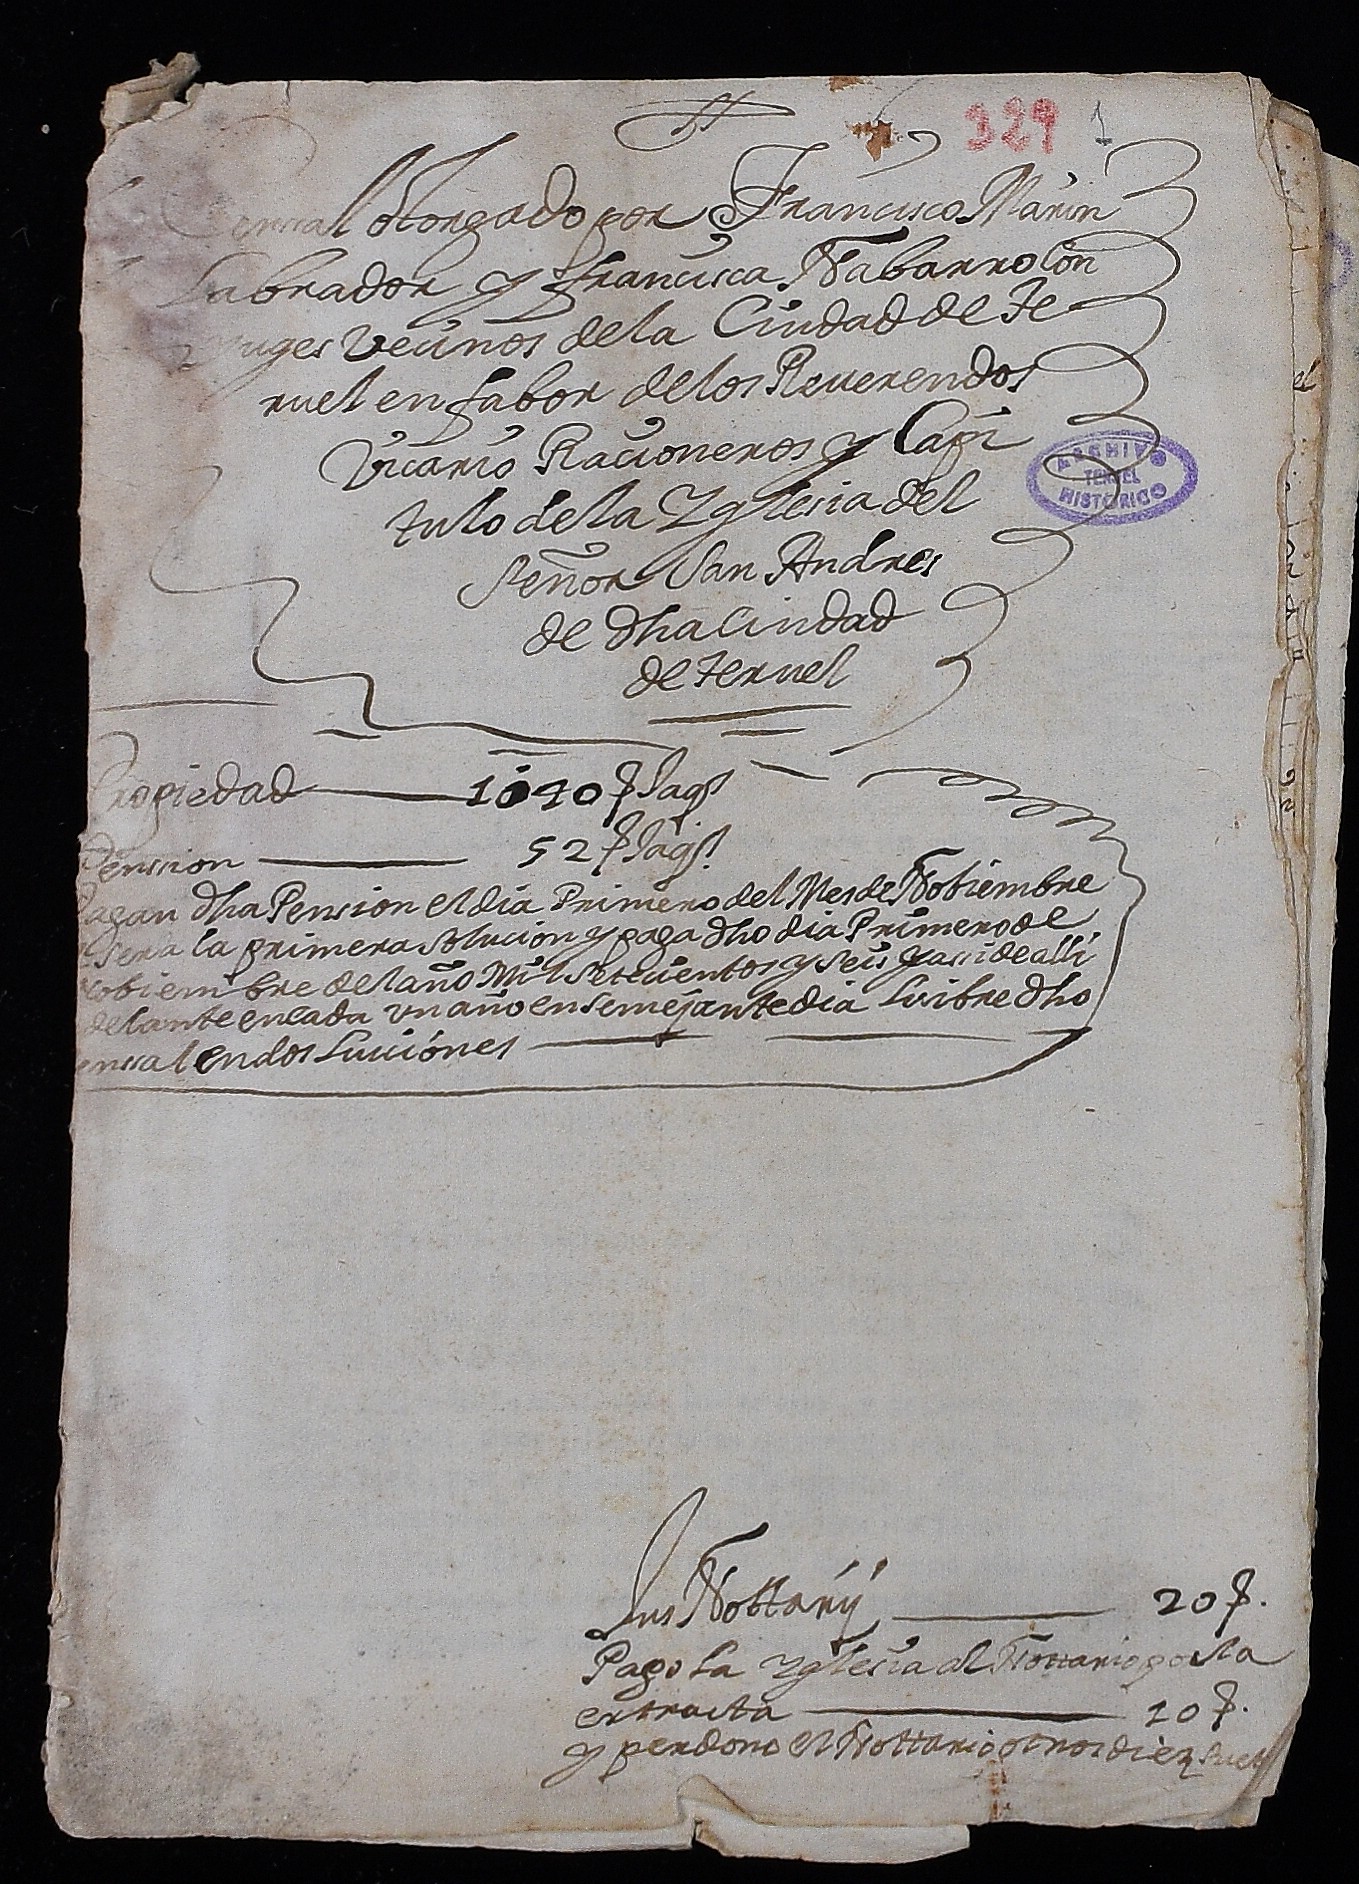 329 1
Censal otorgado por Francisco Marin
Labrador y Francisca Nabarro Con
yuges Vecinos de la Ciudad de Te
ruel en fabor de los Reuerendos
Vicario Racioneros y Capi
tulo de la Yglesia del
Señor San Andres
de dha Ciudad
de Teruel
ARCHIVO
TERUEL
HISTORICO
Propiedad 1040 s Jaqs
Pension 52 s Jaqs
Pagan dha Pension el dia Primero del Mes de Nobiembre
sera la primera solucion y paga dho dia Primero de
Nobiembre del año Mil Setecientos y seis y assi de alli
delante en cada un año en semejante dia Luibre dho
Censal en dos Luiciones
Jus Nottarij 20 s.
Pago la Yglesia al Nottario por la
extracta 10 s.
y perdono el Nottario otros diez suel